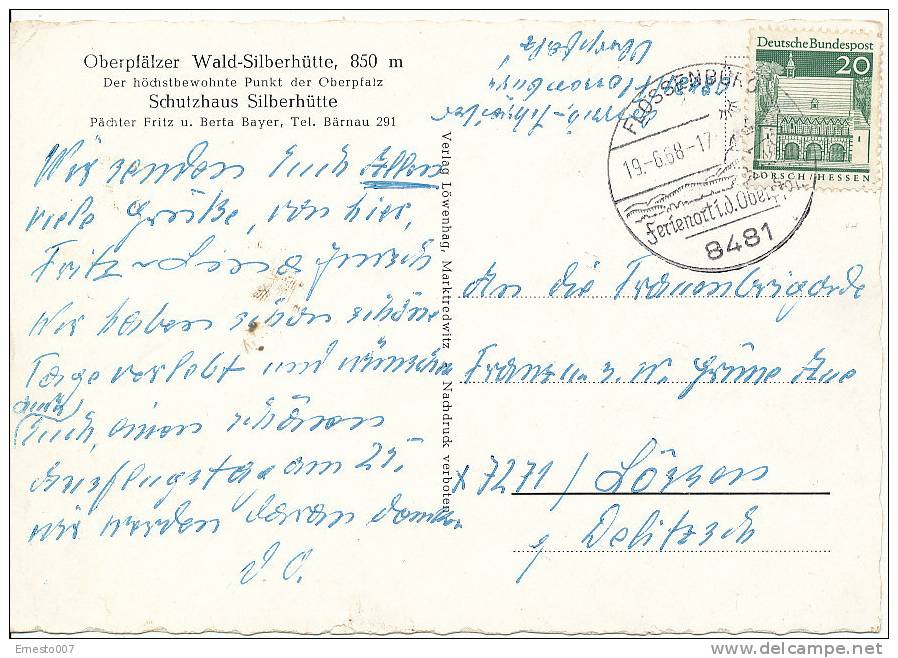 Oberpfälzer Wald-Silberhütte, 850 m
Der höchstbewohnte Punkt der Oberpfalz
Schutzhaus Silberhütte
Pächter Fritz u. Berta Bayer, Tel. Bärnau 291
Wir senden Euch Allen
viele Grüße, von hier,
Fritz
Wir haben schon schöne
Tage verlebt und wünschen
auch
Euch, einen schönen
Ausflugstag am 25.
wir werden daran denken
D. O.
Verlag Löwenhag, Marktredwitz • Nachdruck verboten
Oberpfalz
8481
Deutsche Bundespost
20
LORSCH/HESSEN
FLOSSENBÜRG
19.-6.68.-17
Ferienort i.d. Oberpf
8481
An die Frauenbrigade
Grüne Aue
x 7271 / Lössen
Delitzsch
Ernesto007
www.delcampe.net